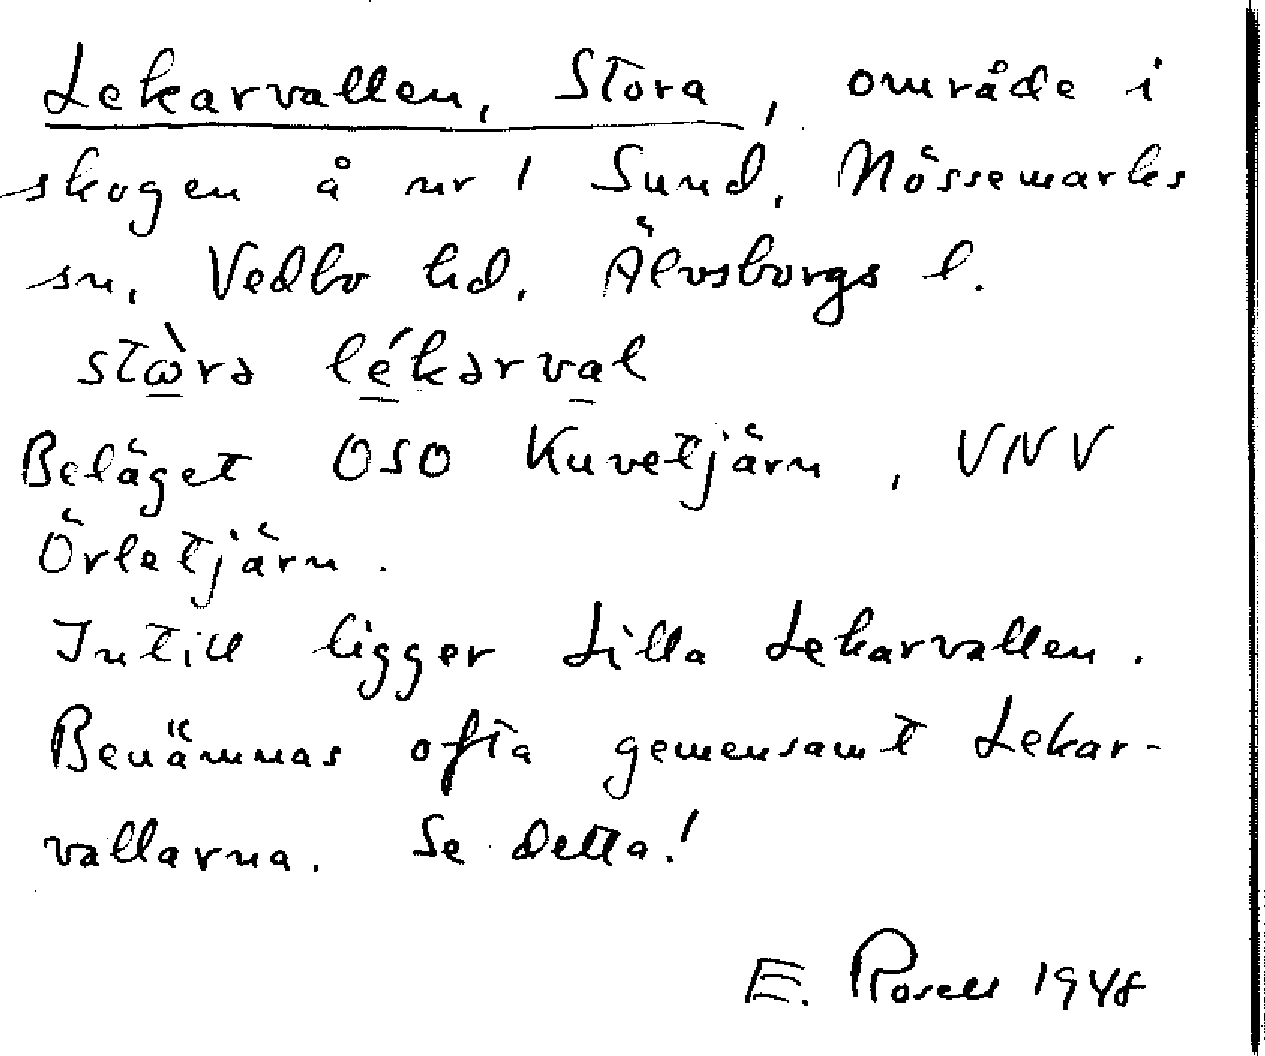 Lekarvallen, Stora, område i
skogen å nr 1 Sund, Nössemarks
sn, Vedbo hd. Älvsborgs l.
stὼrə lékərval
Beläget OSO Kuvetjärn, VNV
Örletjärn.
Intill ligger Lilla Lekarvallen.
Benämnas ofta gemensamt Lekar-
vallarna. Se detta!
E. Rosell 1948